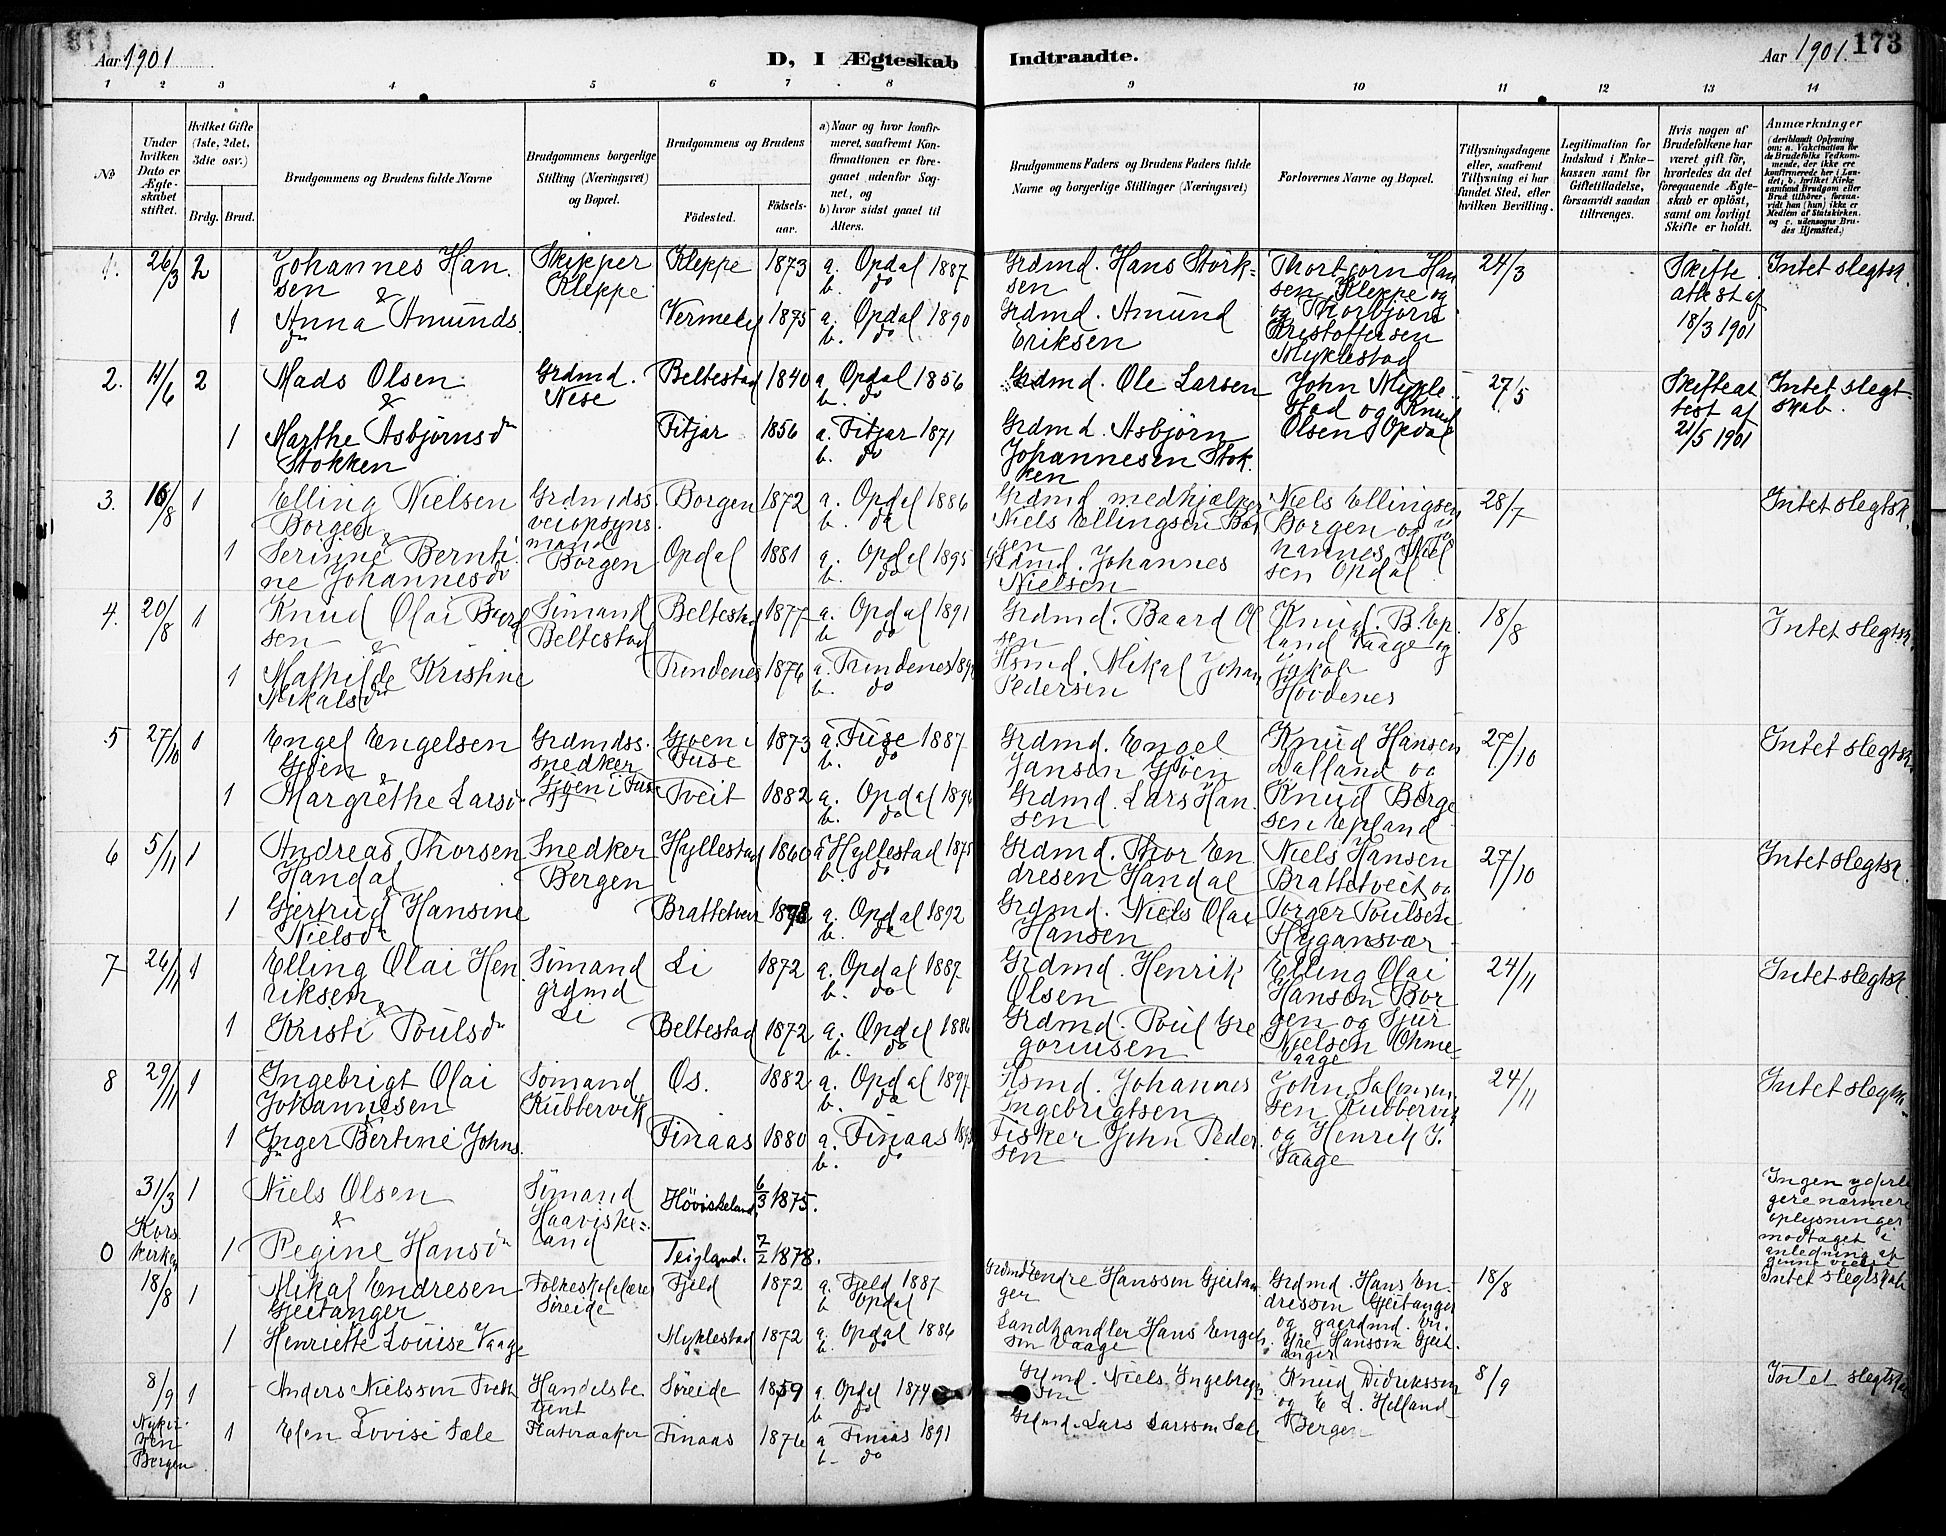 Aar 1901
D, I Ægteskab Indtraadte.
Aar 1901.
173
1 2 3 4 5 6 7 8 9 10 11 12 13 14
№
Under hvilken Dato er Ægteskabet stiftet.
Hvilket Gifte (1ste, 2det, 3die osv.)
Brdg. Brud.
Brudgommens og Brudens fulde Navne
Brudgommens borgerlige Stilling (Næringsvei) og Bopæl.
Brudgommens og Brudens
Födested.
Födsels-aar.
a) Naar og hvor konfirmeret, saafremt Konfirmationen er foregaaet udenför Sognet, og
b) hvor sidst gaaet til Alters.
Brudgommens Faders og Brudens Faders fulde Navne og borgerlige Stillinger (Næringsvei)
Forlovernes Navne og Bopæl.
Tillysningsdagene eller, saafremt Tillysning ei har fundet Sted, efter hvilken Bevilling.
Legitimation for Indskud i Enkekassen samt for Giftetilladelse, forsaavidt saadan tiltrænges.
Hvis nogen af Brudefolkene har været gift för, hvorledes da det foregaaende Ægteskab er oplöst, samt om lovligt Skifte er holdt.
Anmærkninger (deriblandt Oplysning om: a. Vakcination for de Brudefolks Vedkommende, der ikke ere konfirmerede her i Landet; b. hvilket Kirkesamfund Brudgom eller Brud tilhörer, forsaavidt han (hun) ikke er Medlem af Statskirken, og c. udensogns Brudes Hjemsted.)
1. 26/3 2 Johannes Hansen & Skipper Kleppe Kleppe 1873 a. Opdal 1887 b. do Grdmd. Hans Störksen Thorbjörn Hansen Kleppe og 24/3 Skifteattest af 18/3 1901 Intet slegtsk.
1 Anna Amundsdn Vermedy 1875 a. Opdal 1890 b. do Grdmd. Amund Eriksen og Thorbjörn Kristoffersen Myklestad
2. 4/6 2 Mads Olsen & Grdmd. Nese Beltestad 1840 a. Opdal 1856 b. do Grdmd. Ole Larsen John Myklestad og Knud Olsen Opdal 27/5 Skifteattest af 21/5 1901 Intet slegtskab.
1 Marthe Asbjørnsdn Stokken Fitjar 1856 a. Fitjar 1871 b. do Grdmd. Asbjörn Johannesen Stokken
3. 16/8 1 Elling Nielsen Borgen & Grdmdss. veiopsynsmand Borgen Borgen 1872 a. Opdal 1886 b. do Grdmd medhjælper Niels Ellingsen Borgen Niels Ellingsen Borgen og Johannes Nielsen Opdal 28/7 Intet slegtsk.
1 Serinne Berntine Johannesdn Opdal 1881 a. Opdal 1895 b. do Grdmd. Johannes Nielsen
4. 20/8 1 Knud Olai Baardsen & Sömand Beltestad Beltestad 1877 a. Opdal 1891 b. do Grdmd. Baard Olsen Knud. B. Epland Vaage og Jakob Hovdenes 18/8 Intet slegtsk.
1 Mathilde Kristine Mikalsdn Trindenes 1876 a. Trindenes b. do Hsmd. Mikal Johan Pedersen
5 27/10 1 Engel Engelsen Gjöen & Grdmdss. snedker Gjöen i Fuse Gjöen i Fuse 1873 a. Fuse 1887 b. do Grdmd. Engel Jansen Gjöen Knud Hansen Dalland og Knud Börgesen Epland 27/10 Intet slegtsk.
1 Margrethe Larsd Tveit 1882 a. Opdal b. do Grdmd. Lars Hansen
6 5/11 1 Andreas Thorsen Handal & Snedker Bergen Hyllestad 1860 a Hyllestad 1875 b. do Grdmd. Thor Endresen Handal Niels Hansen Brattetveit og Torger Poulsen Hygansvær 27/10 Intet slegtsk.
1 Gjertrud Hansine Nielsdn Brattetveit 1878 a. Opdal 1892 b. do Grdmd. Niels Olai Hansen
7 24/11 1 Elling Olai Henriksen & Sömand grdmd Li Li 1872 a. Opdal 1887 b. do Grdmd. Henrik Olsen Elling Olai Hansen Borgen og Sjur Nielsen Ohmevaage 24/11 Intet slegtsk.
1 Kristi Poulsdn Beltestad 1872 a. Opdal 1886 b. do Grdmd. Poul Gregoriusen
8 29/11 1 Ingebrigt Olai Johannesen & Sömand Kubbervik Os. 1882 a. Opdal 1897 b. do Hsmd. Johannes Ingebrigtsen John Salomonsen Kubbervik og Henrik J. Vaage 24/11 Intet slegtsk.
1 Inger Bertine Johnsdn Finaas 1880 a. Finaas b. do Fisker John Pedersen
0 31/3 Korskirken 1 Niels Olsen & Sömand Haaviskeland Höviskeland 6/3 1875. Ingen yderligere nærmere oplysninger modtaget i anledning af denne vielse
1 Regine Hansdn Teigland. 7/2 1878.
18/8 1 Mikal Endresen Gjeitanger Folkeskolelærer Söreide Fjeld 1872 a. Fjeld 1887 b Opdal Grdmd Endre Hanssen Gjeitanger Grdmd. Hans Endressen Gjeitanger og gaardmd. Hanssen Gjeitanger 18/8 Intet slegtskab
1 Henriette Louise Vaage Myklestad 1872 a. Opdal 1886 b. do Landhandler Hans Engelsen Vaage
8/9 Nykirken Bergen 1 Anders Nielssen Tveit & Handelsbetjent Flateraaker Söreide 1859 a. Opdal 1874 b do Grdmd. Niels Ingebrigtsen Knud Didrikssen og E. L. Helland Bergen 8/9 Intet slegtskab
1 Elen Lovise Sæle Finaas 1876 a Finaas 1891 b. do Grdmd. Lars Larssen Sæle